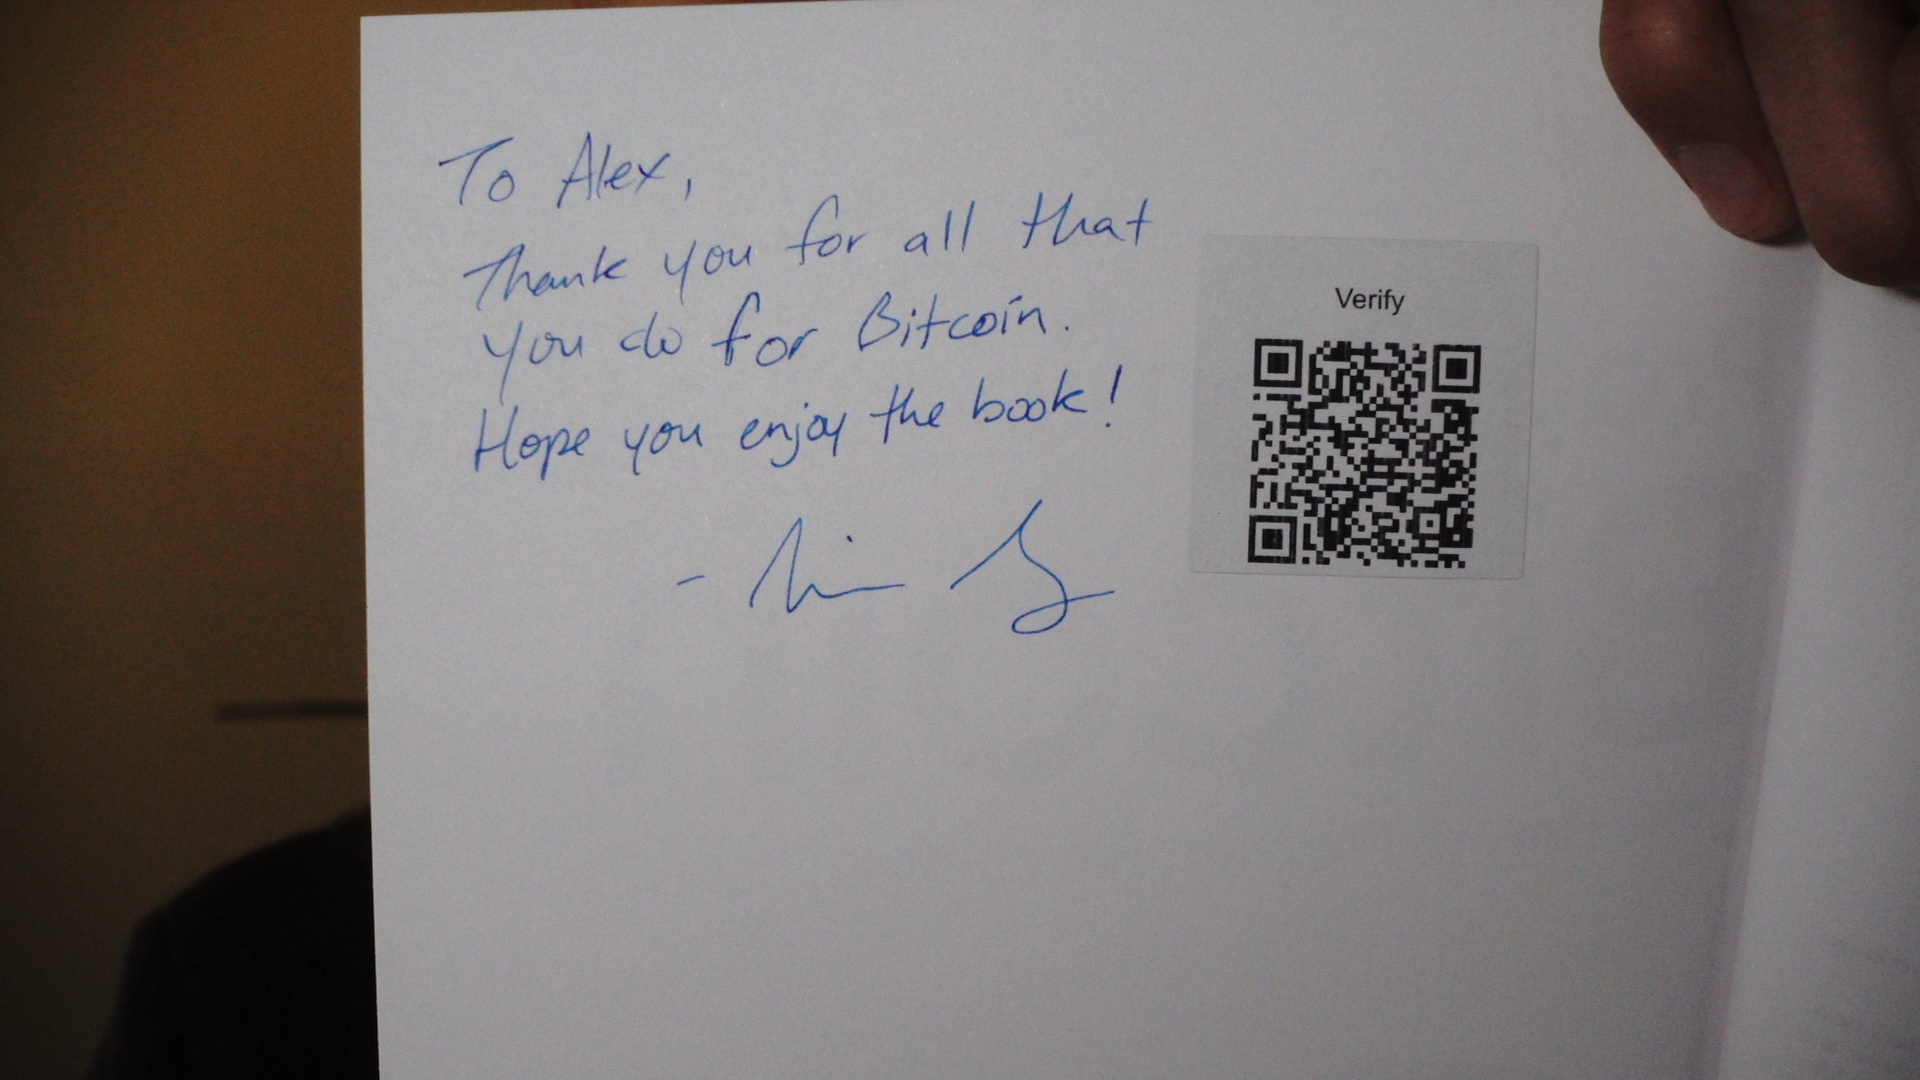 To Alex,
Thank you for all that
you do for Bitcoin.
Hope you enjoy the book!
Verify